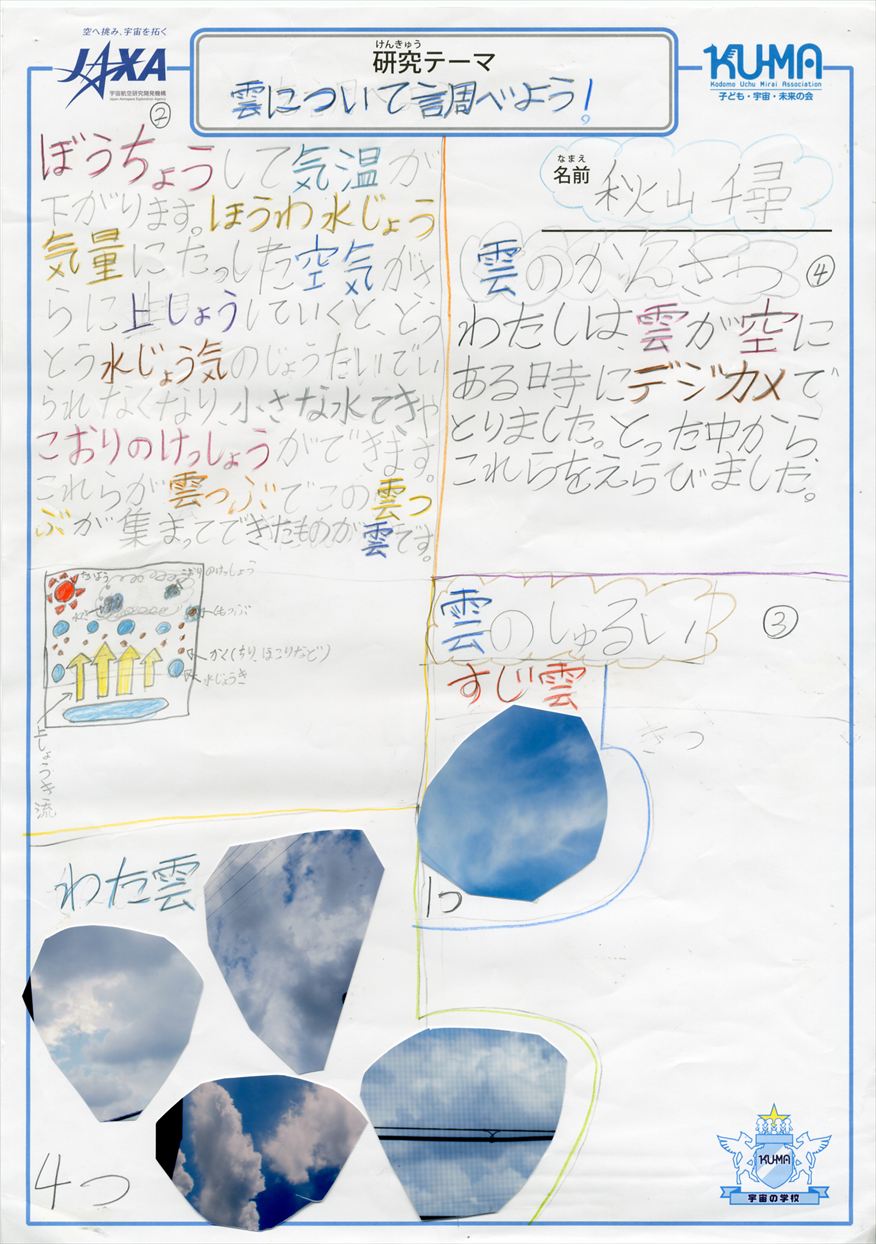 空へ挑み、宇宙を拓く
JAXA
宇宙航空研究開発機構
Japan Aerospace Exploration Agency
けんきゅう
研究テーマ
雲について調べよう!
KU-MA
Kodomo Uchu Mirai Association
子ども・宇宙・未来の会
②
ぼうちょうして気温が
下がります。ほうわ水じょう
気量にたっした空気がさ
らに上しょうしていくと、とう
とう水じょう気のじょうたいでい
られなくなり、小さな水てきや
こおりのけっしょうができます。
これらが雲つぶでこの雲つ
ぶが集まってできたものが雲です。
たいよう
こおりのけっしょう
くもつぶ
かく(ちり、ほこりなど)
水じょうき
上しょうき流
なまえ
名前
秋山千尋
雲のかんさつ
④
わたしは、雲が空に
ある時にデジカメで
とりました。とった中から
これらをえらびました。
雲のしゅるい
③
すじ雲
1つ
わた雲
4つ
KU-MA
宇宙の学校